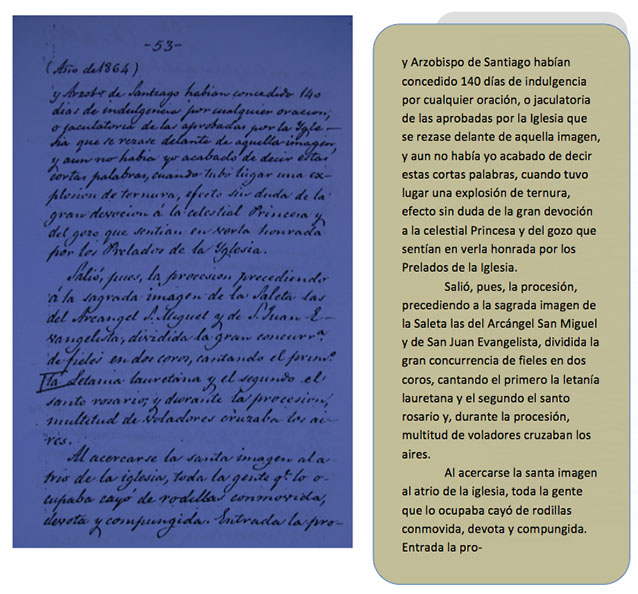 -53-
(Año de 1864)
y Arzobº de Santiago habian concedido 140
dias de indulgencia por cualquier oracion,
o jaculatoria de las aprobadas por la Ygle-
sia que se rezase delante de aquella imagen,
y aun no habia yo acabado de decir estas
cortas palabras, cuando tubo lugar una ex-
plosion de ternura, efecto sin duda de la
gran devocion á la celestial Princesa y
del gozo que sentian en verla honrada
por los Prelados de la Yglesia.
Salió, pues, la procesion precediendo
á la sagrada imagen de la Saleta las
del Arcangel S. Miguel y de S. Juan E-
vangelista, dividida la gran concurrª
de fieles en dos coros, cantando el primº
la Letania lauretana y el segundo el
santo rosario; y durante la procesion,
multitud de voladores cruzaba los ai-
res.
Al acercarse la santa imagen al a-
trio de la iglesia, toda la gente qe lo o-
cupaba cayó de rodillas conmovida,
devota y compungida. Entrada la pro-
y Arzobispo de Santiago habían
concedido 140 días de indulgencia
por cualquier oración, o jaculatoria
de las aprobadas por la Iglesia que
se rezase delante de aquella imagen,
y aun no había yo acabado de decir
estas cortas palabras, cuando tuvo
lugar una explosión de ternura,
efecto sin duda de la gran devoción
a la celestial Princesa y del gozo que
sentían en verla honrada por los
Prelados de la Iglesia.
Salió, pues, la procesión,
precediendo a la sagrada imagen de
la Saleta las del Arcángel San Miguel
y de San Juan Evangelista, dividida la
gran concurrencia de fieles en dos
coros, cantando el primero la letanía
lauretana y el segundo el santo
rosario y, durante la procesión,
multitud de voladores cruzaban los
aires.
Al acercarse la santa imagen
al atrio de la iglesia, toda la gente
que lo ocupaba cayó de rodillas
conmovida, devota y compungida.
Entrada la pro-